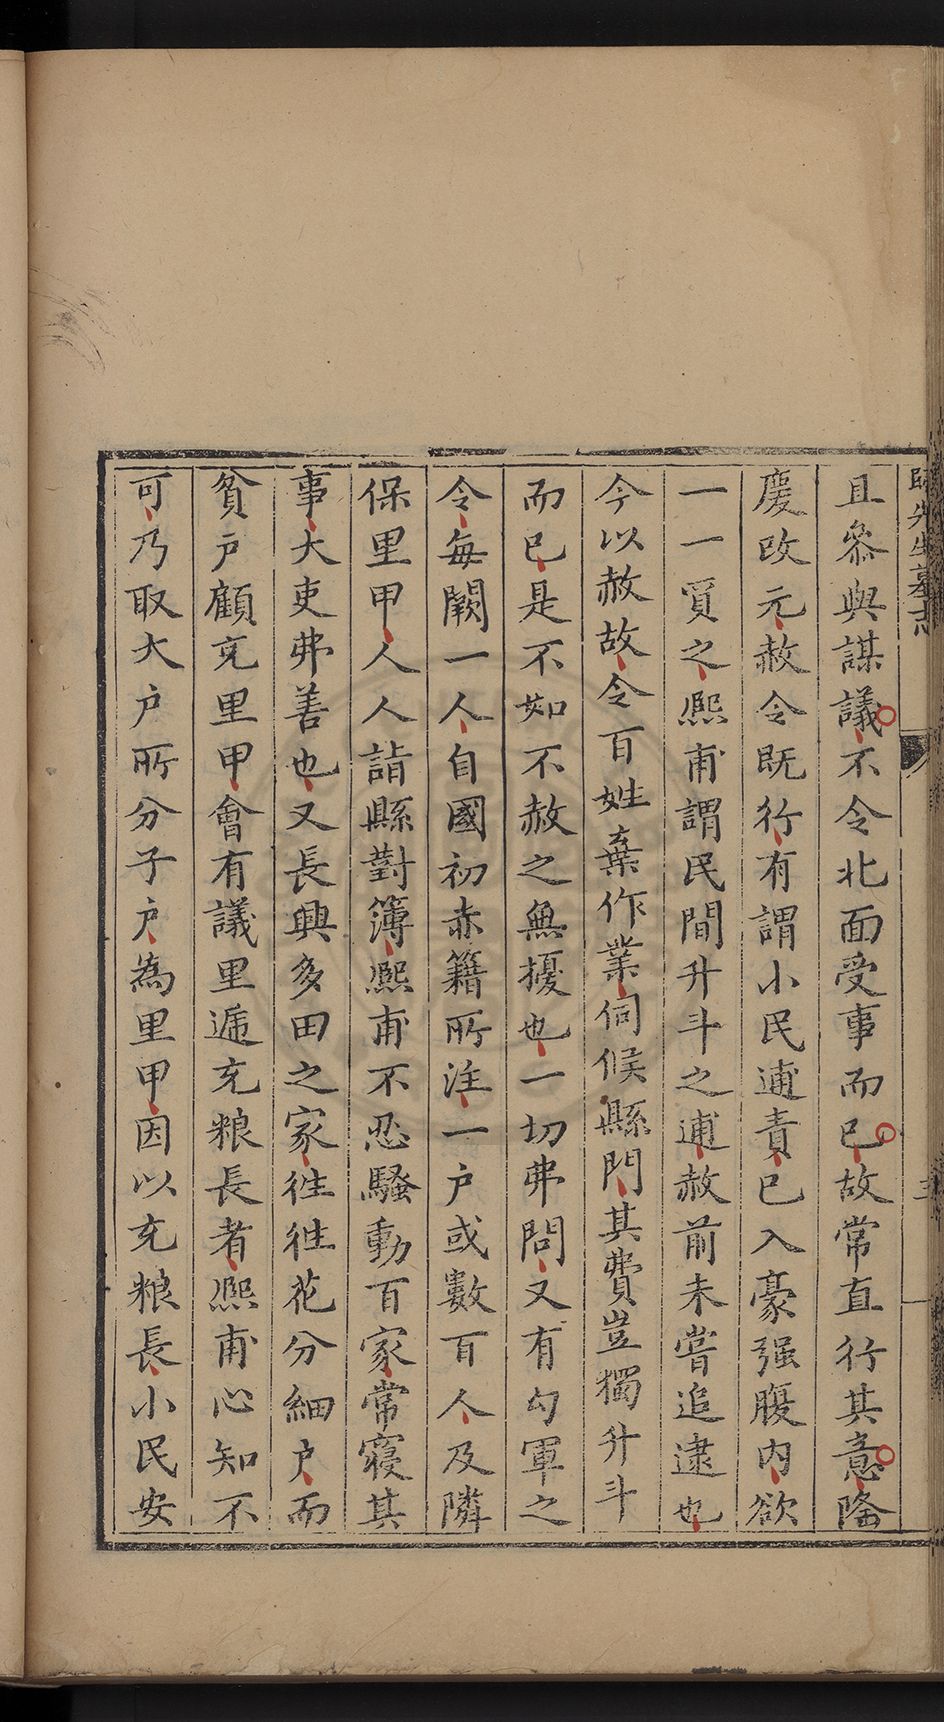 先生墓志
且叅與謀議不令北面受事而已故常直行其意隆
慶改元赦令既行有謂小民逋責已入豪强腹内欲
一一買之熈甫謂民間升斗之逋赦前未嘗追逮也
今以赦故令百姓棄作業伺候縣門其費豈獨升斗
而已是不如不赦之無擾也一切弗問又有勾軍之
令每闕一人自國初赤籍所注一户或數百人及隣
保里甲人人詣縣對簿熈甫不忍騷動百家常寢其
事大吏弗善也又長興多田之家徃徃花分細户而
貧户顧充里甲會有議里逓充粮長者熈甫心知不
可乃取大户所分子户為里甲因以充粮長小民安